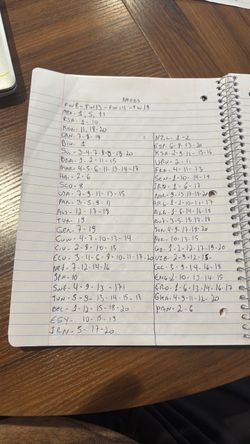 NEEDS
FWC8 - FWC13 - FWC14 - FWC18
MEX - 1, 5, 11
RSA - 1 - 10
KOR - 11 - 18 - 20
CAN - 7 - 8 - 19
BIH - 1
SUI - 3 - 4 - 7 - 8 - 18 - 20
BRA - 1 - 2 - 11 - 15
MAR - 4 - 5 - 6 - 11 - 13 - 14 - 17
HAI - 2 - 6
SCO - 8
USA - 7 - 9 - 11 - 13 - 15
PAR - 3 - 5 - 9 - 11
AUS - 12 - 17 - 19
TUR - 19
GER - 7 - 19
CUW - 4 - 7 - 10 - 13 - 14
CIV - 2 - 9 - 10 - 15
ECU - 3 - 4 - 6 - 8 - 9 - 10 - 11 - 17 - 20
NED - 7 - 12 - 14 - 16
JPN - 10
SWE - 4 - 9 - 13 - 17
TUN - 5 - 9 - 13 - 14 - 15 - 18
BEL - 1 - 12 - 15 - 18 - 20
EGY - 10 - 15 - 19
IRN - 5 - 17 - 20
NZL - 1 - 2
ESP - 6 - 8 - 13 - 20
KSA - 2 - 9 - 11 - 15 - 16
URU - 2 - 11
FRA - 4 - 11 - 13
SEN - 1 - 10 - 14 - 19
IRQ - 1 - 6 - 13
NOR - 9 - 13 - 17 - 18 - 20
ARG - 1 - 2 - 10 - 11 - 17
ALG - 1 - 8 - 14 - 16 - 19
AUT - 3 - 5 - 8 - 12 - 19
JOR - 4 - 9 - 17 - 18 - 20
POR - 10 - 13 - 15
COD - 1 - 8 - 12 - 17 - 18 - 19 - 20
UZB - 2 - 9 - 12 - 15
COL - 3 - 9 - 14 - 16 - 18
ENG - 2 - 10 - 13 - 14 - 15
CRO - 1 - 6 - 13 - 14 - 16 - 17
GHA - 4 - 9 - 11 - 12 - 20
PAN - 2 - 6